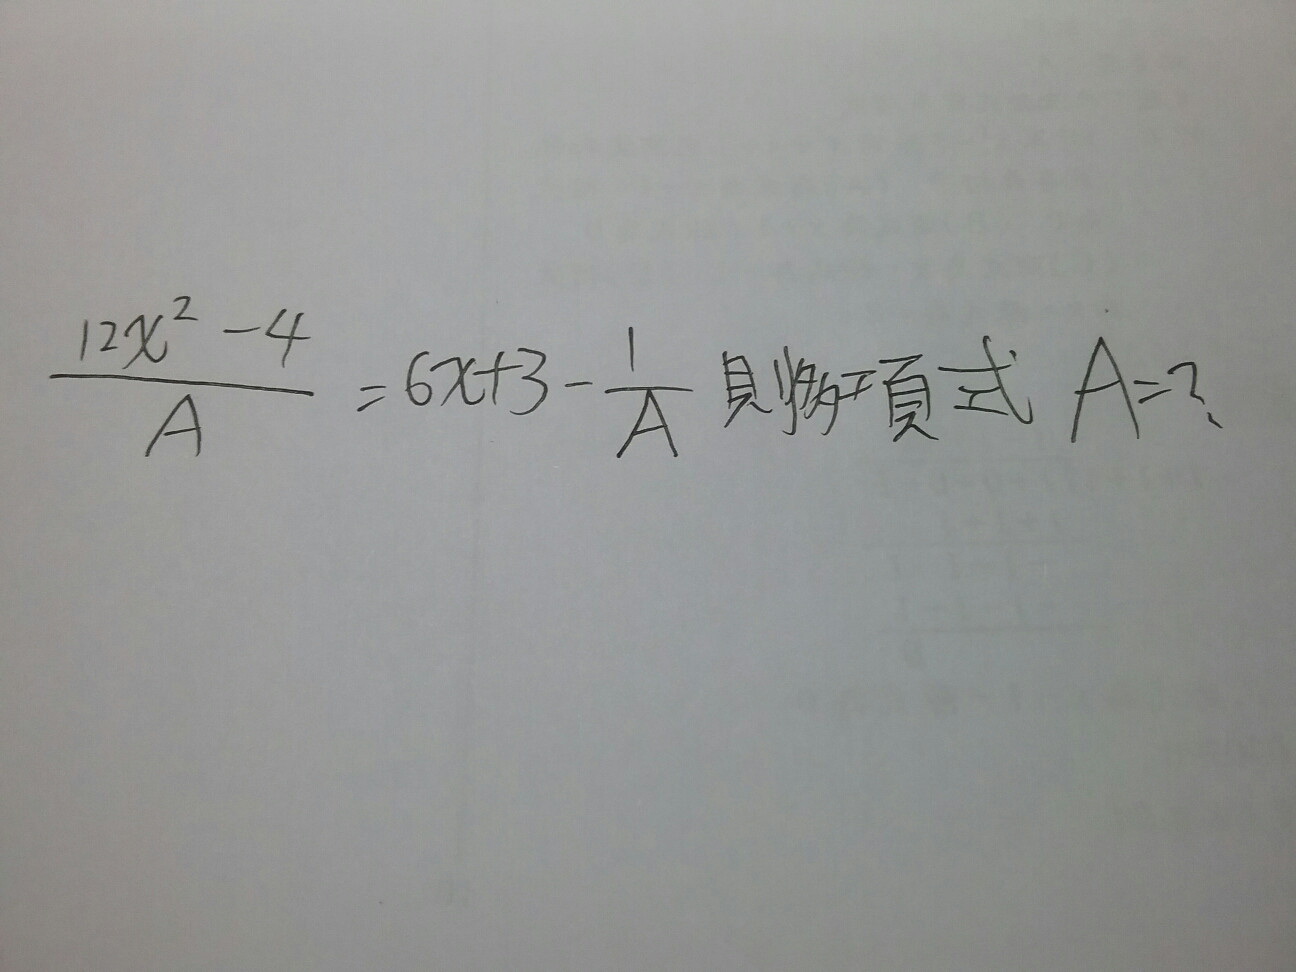 12x² -4 / A = 6x+3 - 1/A 則多項式 A=?